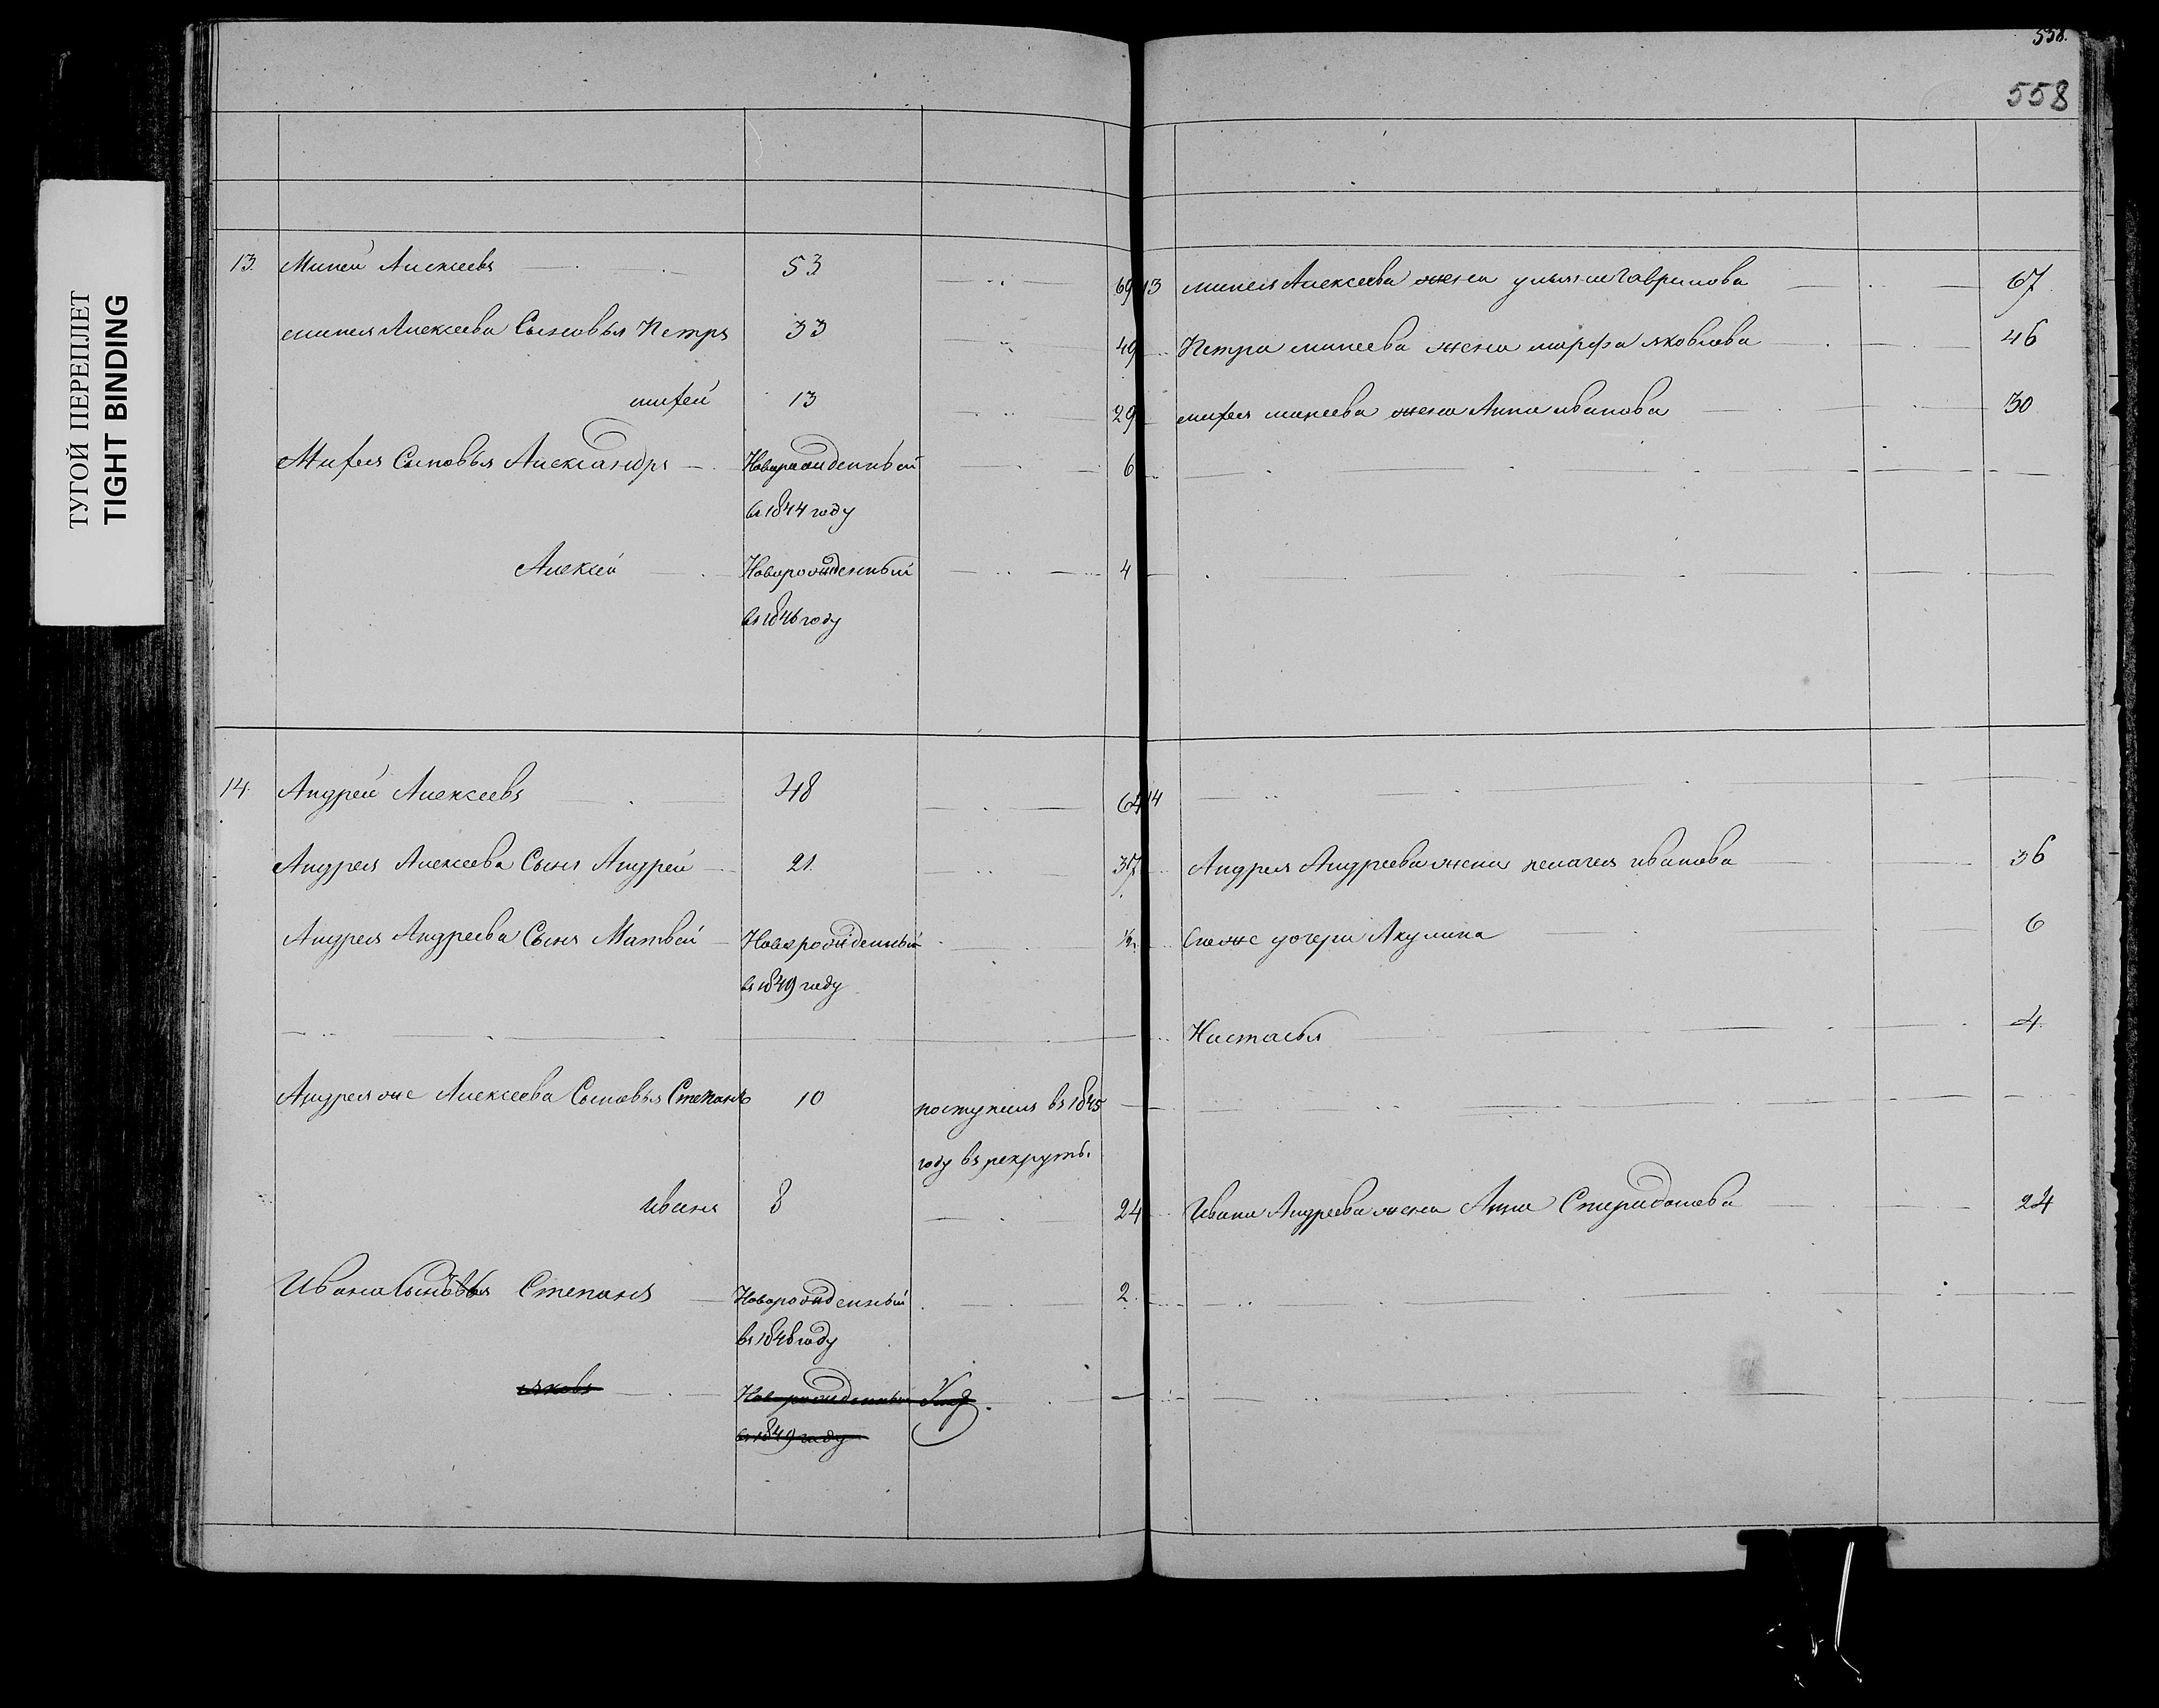 ТУГОЙ ПЕРЕПЛЕТ
TIGHT BINDING
558.
558
13. Миней Алексеевъ 53 69
минея Алексеева Сыновья Петръ 33 49
мифей 13 29
Мифея Сыновья Александръ Новорожденный 6
въ 1844 году
Алексей Новорожденный 4
въ 1846 году
14. Андрей Алексеевъ 48 64
Андрея Алексеева Сынъ Андрей 21. 37
Андрея Андреева Сынъ Матвей Новорожденный ½
въ 1849 году
Андрея же Алексеева Сыновья Степанъ 10 поступилъ въ 1845
году въ рекруты.
иванъ 8 24
Ивана Сыновья Степанъ Новорожденный 2.
въ 1848 году
яковъ Новорожденный
въ 1849 году
13 минея Алексеева жена ульяна гаврилова 67
Петра минеева жена марфа яковлева 46
мифея минеева жена Анна иванова 30
14
Андрея Андреева жена пелагея иванова 36
Его же дочери Акулина 6
Настасья 4
Ивана Андреева жена Анна Спиридонова 24